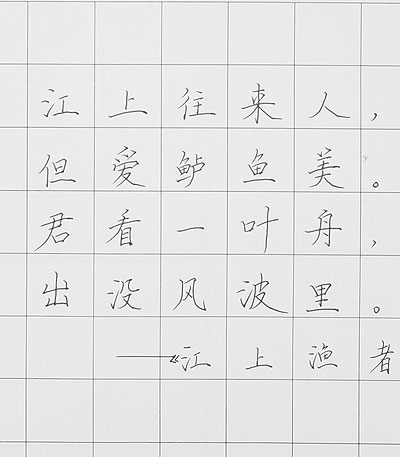 江上往来人，
但爱鲈鱼美。
君看一叶舟，
出没风波里。
——《江上渔者